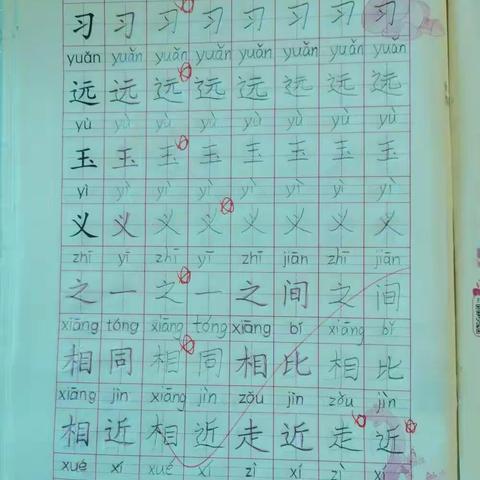 习 习 习 习 习 习 习 习
yuǎn yuǎn yuǎn yuǎn yuǎn yuǎn yuǎn yuǎn
远 远 远 远 远 远 远 远
yù yù yù yù yù yù yù yù
玉 玉 玉 玉 玉 玉 玉 玉
yì yì yì yì yì yì yì yì
义 义 义 义 义 义 义 义
zhī yī zhī yī zhī jiān zhī jiān
之 一 之 一 之 间 之 间
xiāng tóng xiāng tóng xiāng bǐ xiāng bǐ
相 同 相 同 相 比 相 比
xiāng jìn xiāng jìn zǒu jìn zǒu jìn
相 近 相 近 走 近 走 近
xué xí xué xí zì xí zì xí